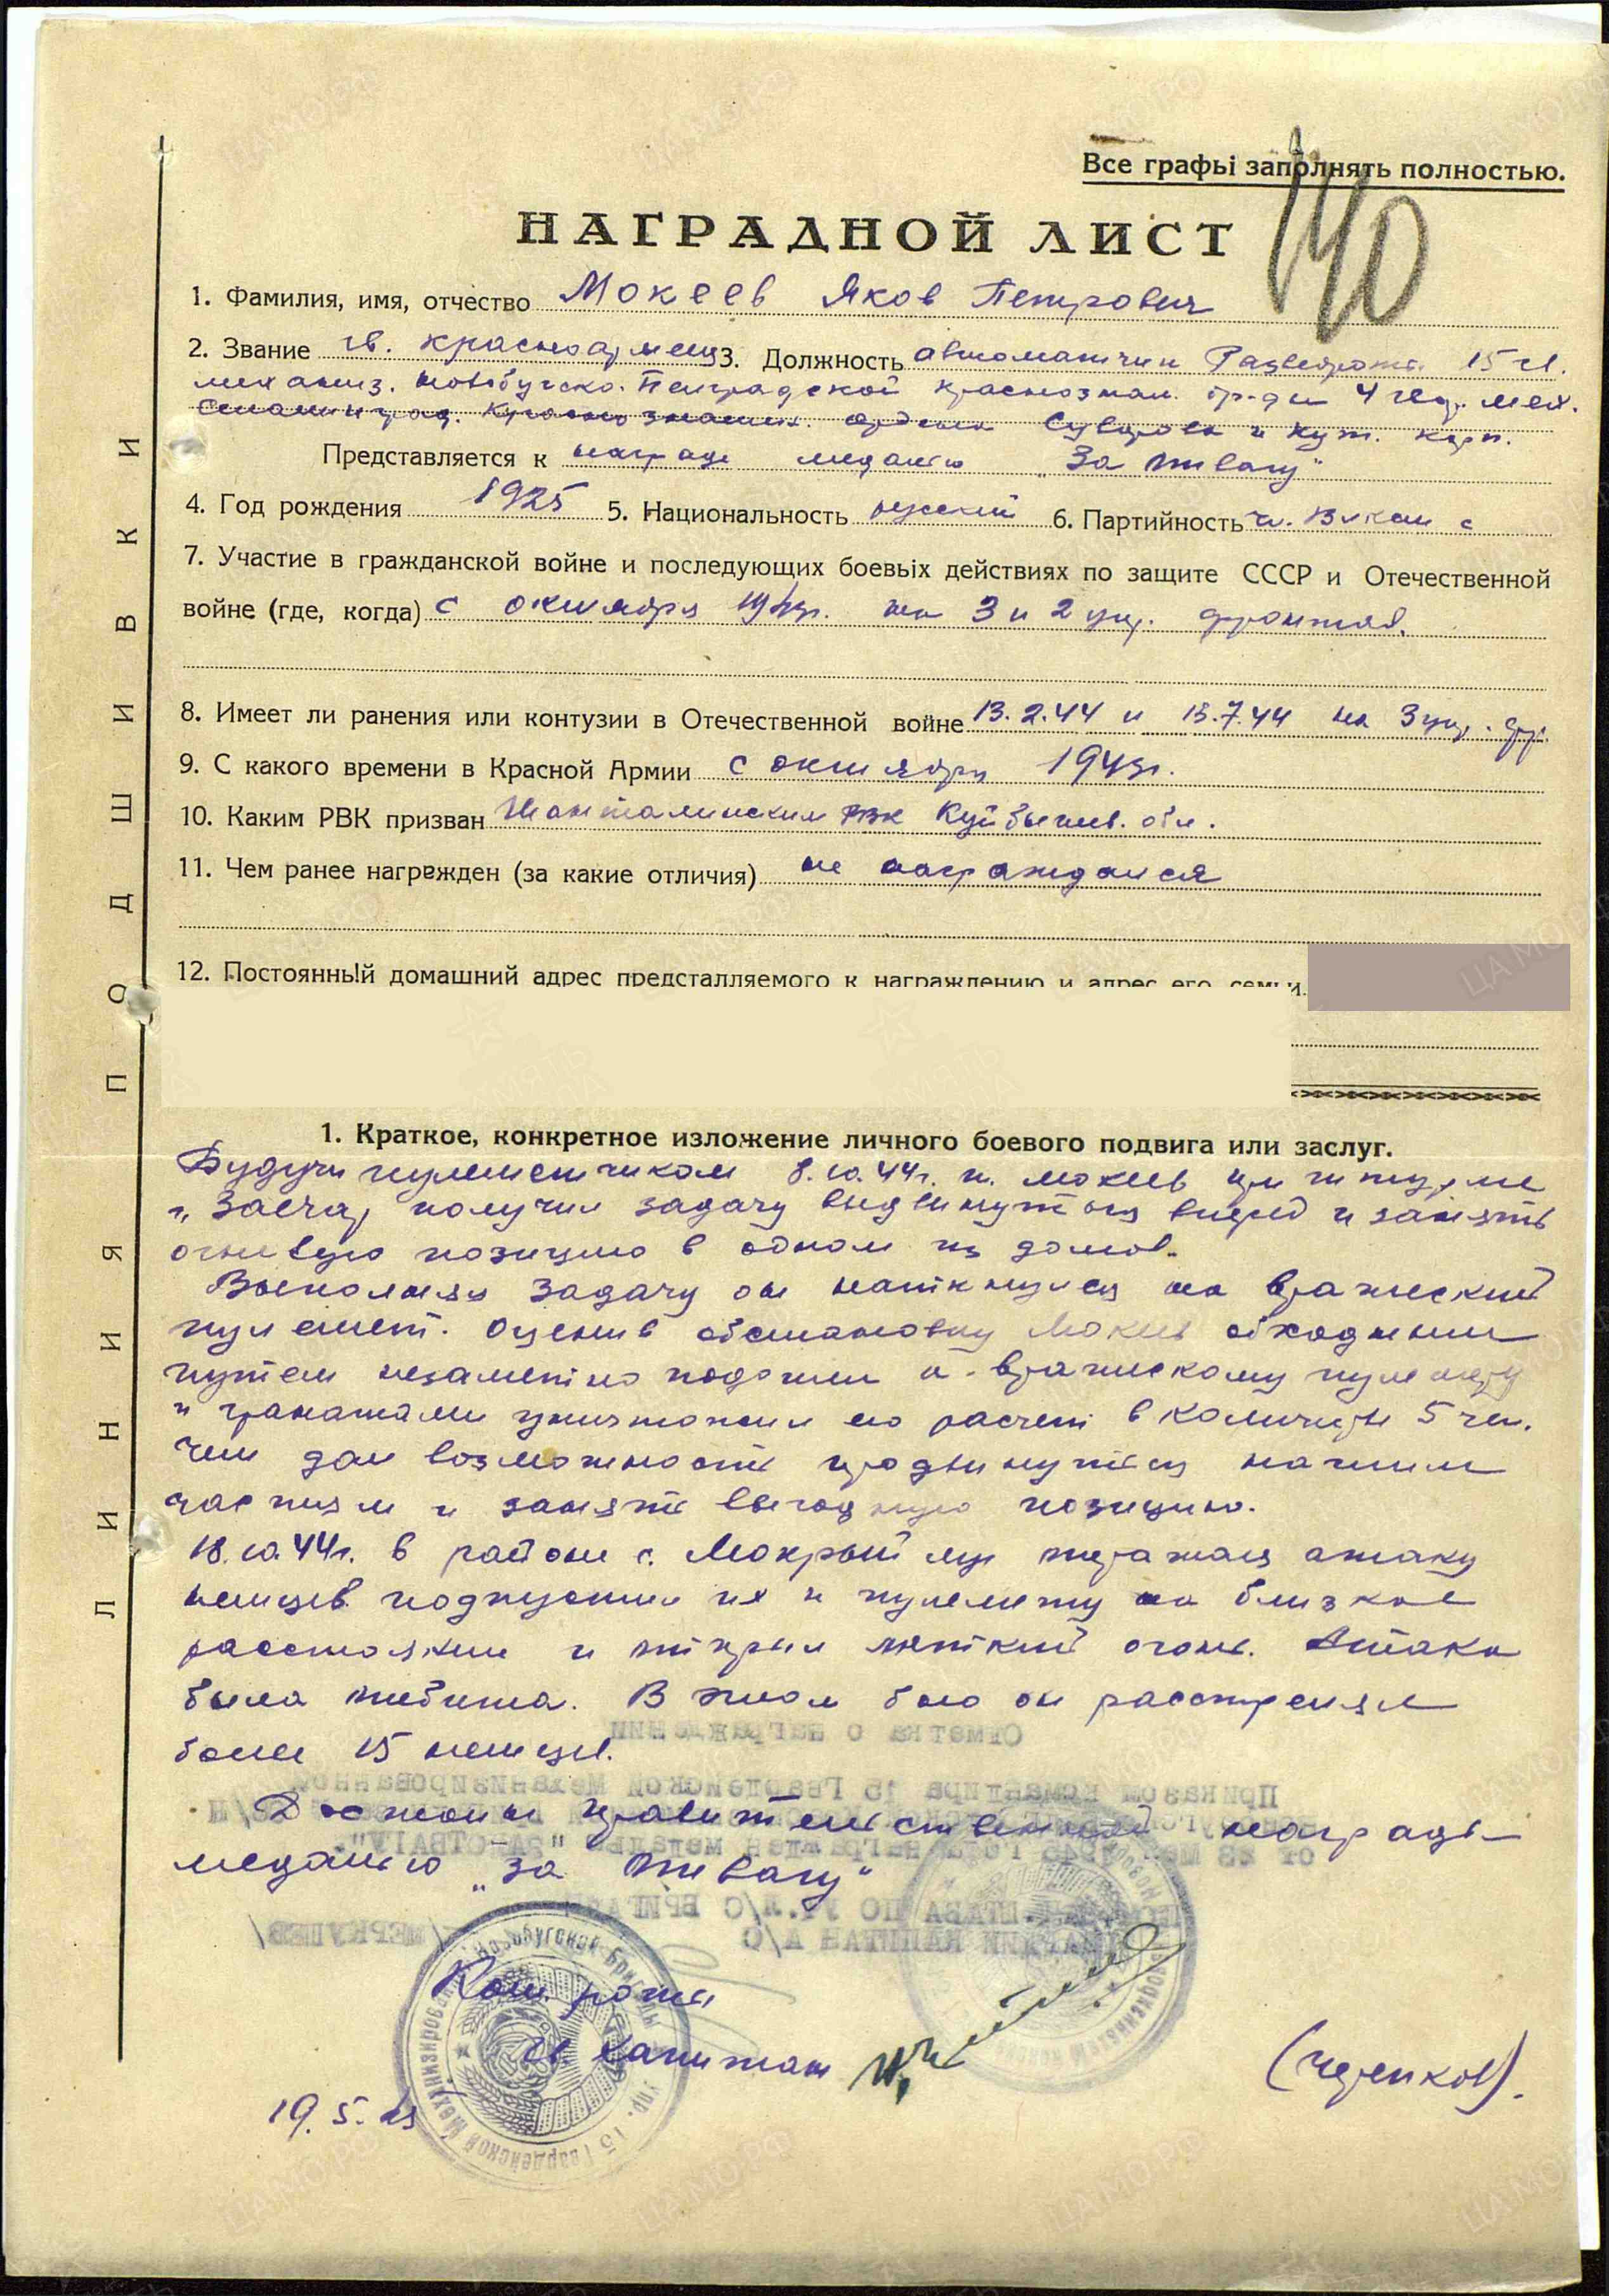 Все графы заполнять полностью.
140
НАГРАДНОЙ ЛИСТ
1. Фамилия, имя, отчество Мокеев Яков Петрович
2. Звание гв. красноармеец 3. Должность автоматчик Разведроты 15 гв.
механиз. Новобугско. Пенградской краснознам. бр-ды 4 гвар. мех.
Сталинград. Краснознамен. ордена Суворова и Кут. корп.
Представляется к награде медалью "За отвагу"
4. Год рождения 1925 5. Национальность русский 6. Партийность чл. ВЛКСМ с
7. Участие в гражданской войне и последующих боевых действиях по защите СССР и Отечественной
войне (где, когда) с октября 1943г. на 3 и 2 укр. фронтах.
8. Имеет ли ранения или контузии в Отечественной войне 13.2.44 и 13.7.44 на 3 укр. фр.
9. С какого времени в Красной Армии с октября 1943г.
10. Каким РВК призван Шанталинским РВК Куйбышев. обл.
11. Чем ранее награжден (за какие отличия) не награждался
12. Постоянный домашний адрес предсталляемого к награждению и адрес его семьи.
1. Краткое, конкретное изложение личного боевого подвига или заслуг.
Будучи пулеметчиком 8.10.44г. т. Мокеев при штурме
г. Заечар получил задачу выдвинуться вперед и занять
огневую позицию в одном из домов.
Выполняя задачу он наткнулся на вражеский
пулемет. Оценив обстановку Мокеев обходным
путем незаметно подошел к вражескому пулемету
и гранатами уничтожил его расчет в количестве 5 чел.
Чем дал возможность продвинуться нашим
частям и занять выгодную позицию.
18.10.44г. в районе с. Мокрый луг отражая атаку
немцев подпустил их к пулемету на близкое
расстояние и открыл меткий огонь. Атака
была отбита. В этом бою он расстрелял
более 15 немцев.
Отметка о награждении
Приказом командира 15 Гвардейской Механизированной
от 23 мая 1945 года награжден медалью "ЗА ОТВАГУ".
Достоин правительственной награды
медалью "за отвагу"
ПОМ. НАЧ. ШТАБА ПО УЧ. Л/С БРИГАДЫ
ГВАРДИИ КАПИТАН А/С /МЕРКУШЕВ/
Ком. роты
гв. капитан
(Черенков).
19.5.45
ЛИНИЯ ПОДШИВКИ